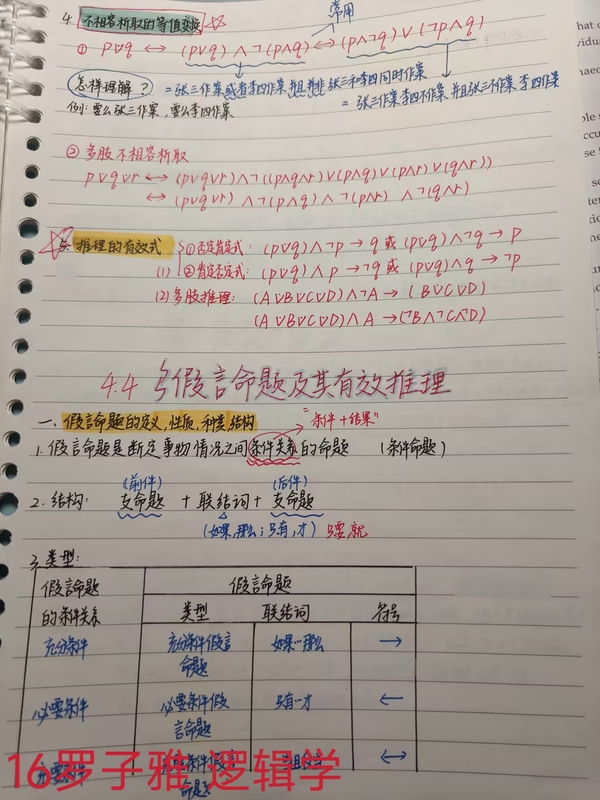 4. 不相容析取的等值变换
常用
① p∨̇q ⟷ (p∨q)∧¬(p∧q) ⟷ (p∧¬q)∨(¬p∧q)
怎样理解? =张三作案或者李四作案 并且并非 张三和李四同时作案
例: 要么张三作案, 要么李四作案
= 张三作案李四不作案 并且张三不作案 李四作案
② 多肢不相容析取
p∨̇q∨̇r ⟷ (p∨q∨r)∧¬((p∧q∧r)∨(p∧q)∨(p∧r)∨(q∧r))
⟷ (p∨q∨r)∧¬(p∧q)∧¬(p∧r)∧¬(q∧r)
5. 推理的有效式
① 否定肯定式: (p∨̇q)∧¬p → q 或 (p∨̇q)∧¬q → p
(1) ② 肯定否定式: (p∨̇q)∧p → ¬q 或 (p∨̇q)∧q → ¬p
(2) 多肢推理: (A∨̇B∨̇C∨̇D)∧¬A → (B∨̇C∨̇D)
(A∨̇B∨̇C∨̇D)∧A → (¬B∧¬C∧¬D)
4.4 假言命题及其有效推理
一. 假言命题的定义, 性质, 种类, 结构
"条件+结果"
1. 假言命题是断定事物情况之间条件关系的命题 (条件命题)
(前件) (后件)
2. 结构: 支命题 + 联结词 + 支命题
(如果, 那么; 只有, 才) 只要, 就
3. 类型:
假言命题的条件关系 假言命题
类型 联结词 符号
充分条件 充分条件假言命题 如果…那么 →
必要条件 必要条件假言命题 只有…才 ←
充要条件 命题 当且仅当 ⟷
16罗子雅 逻辑学